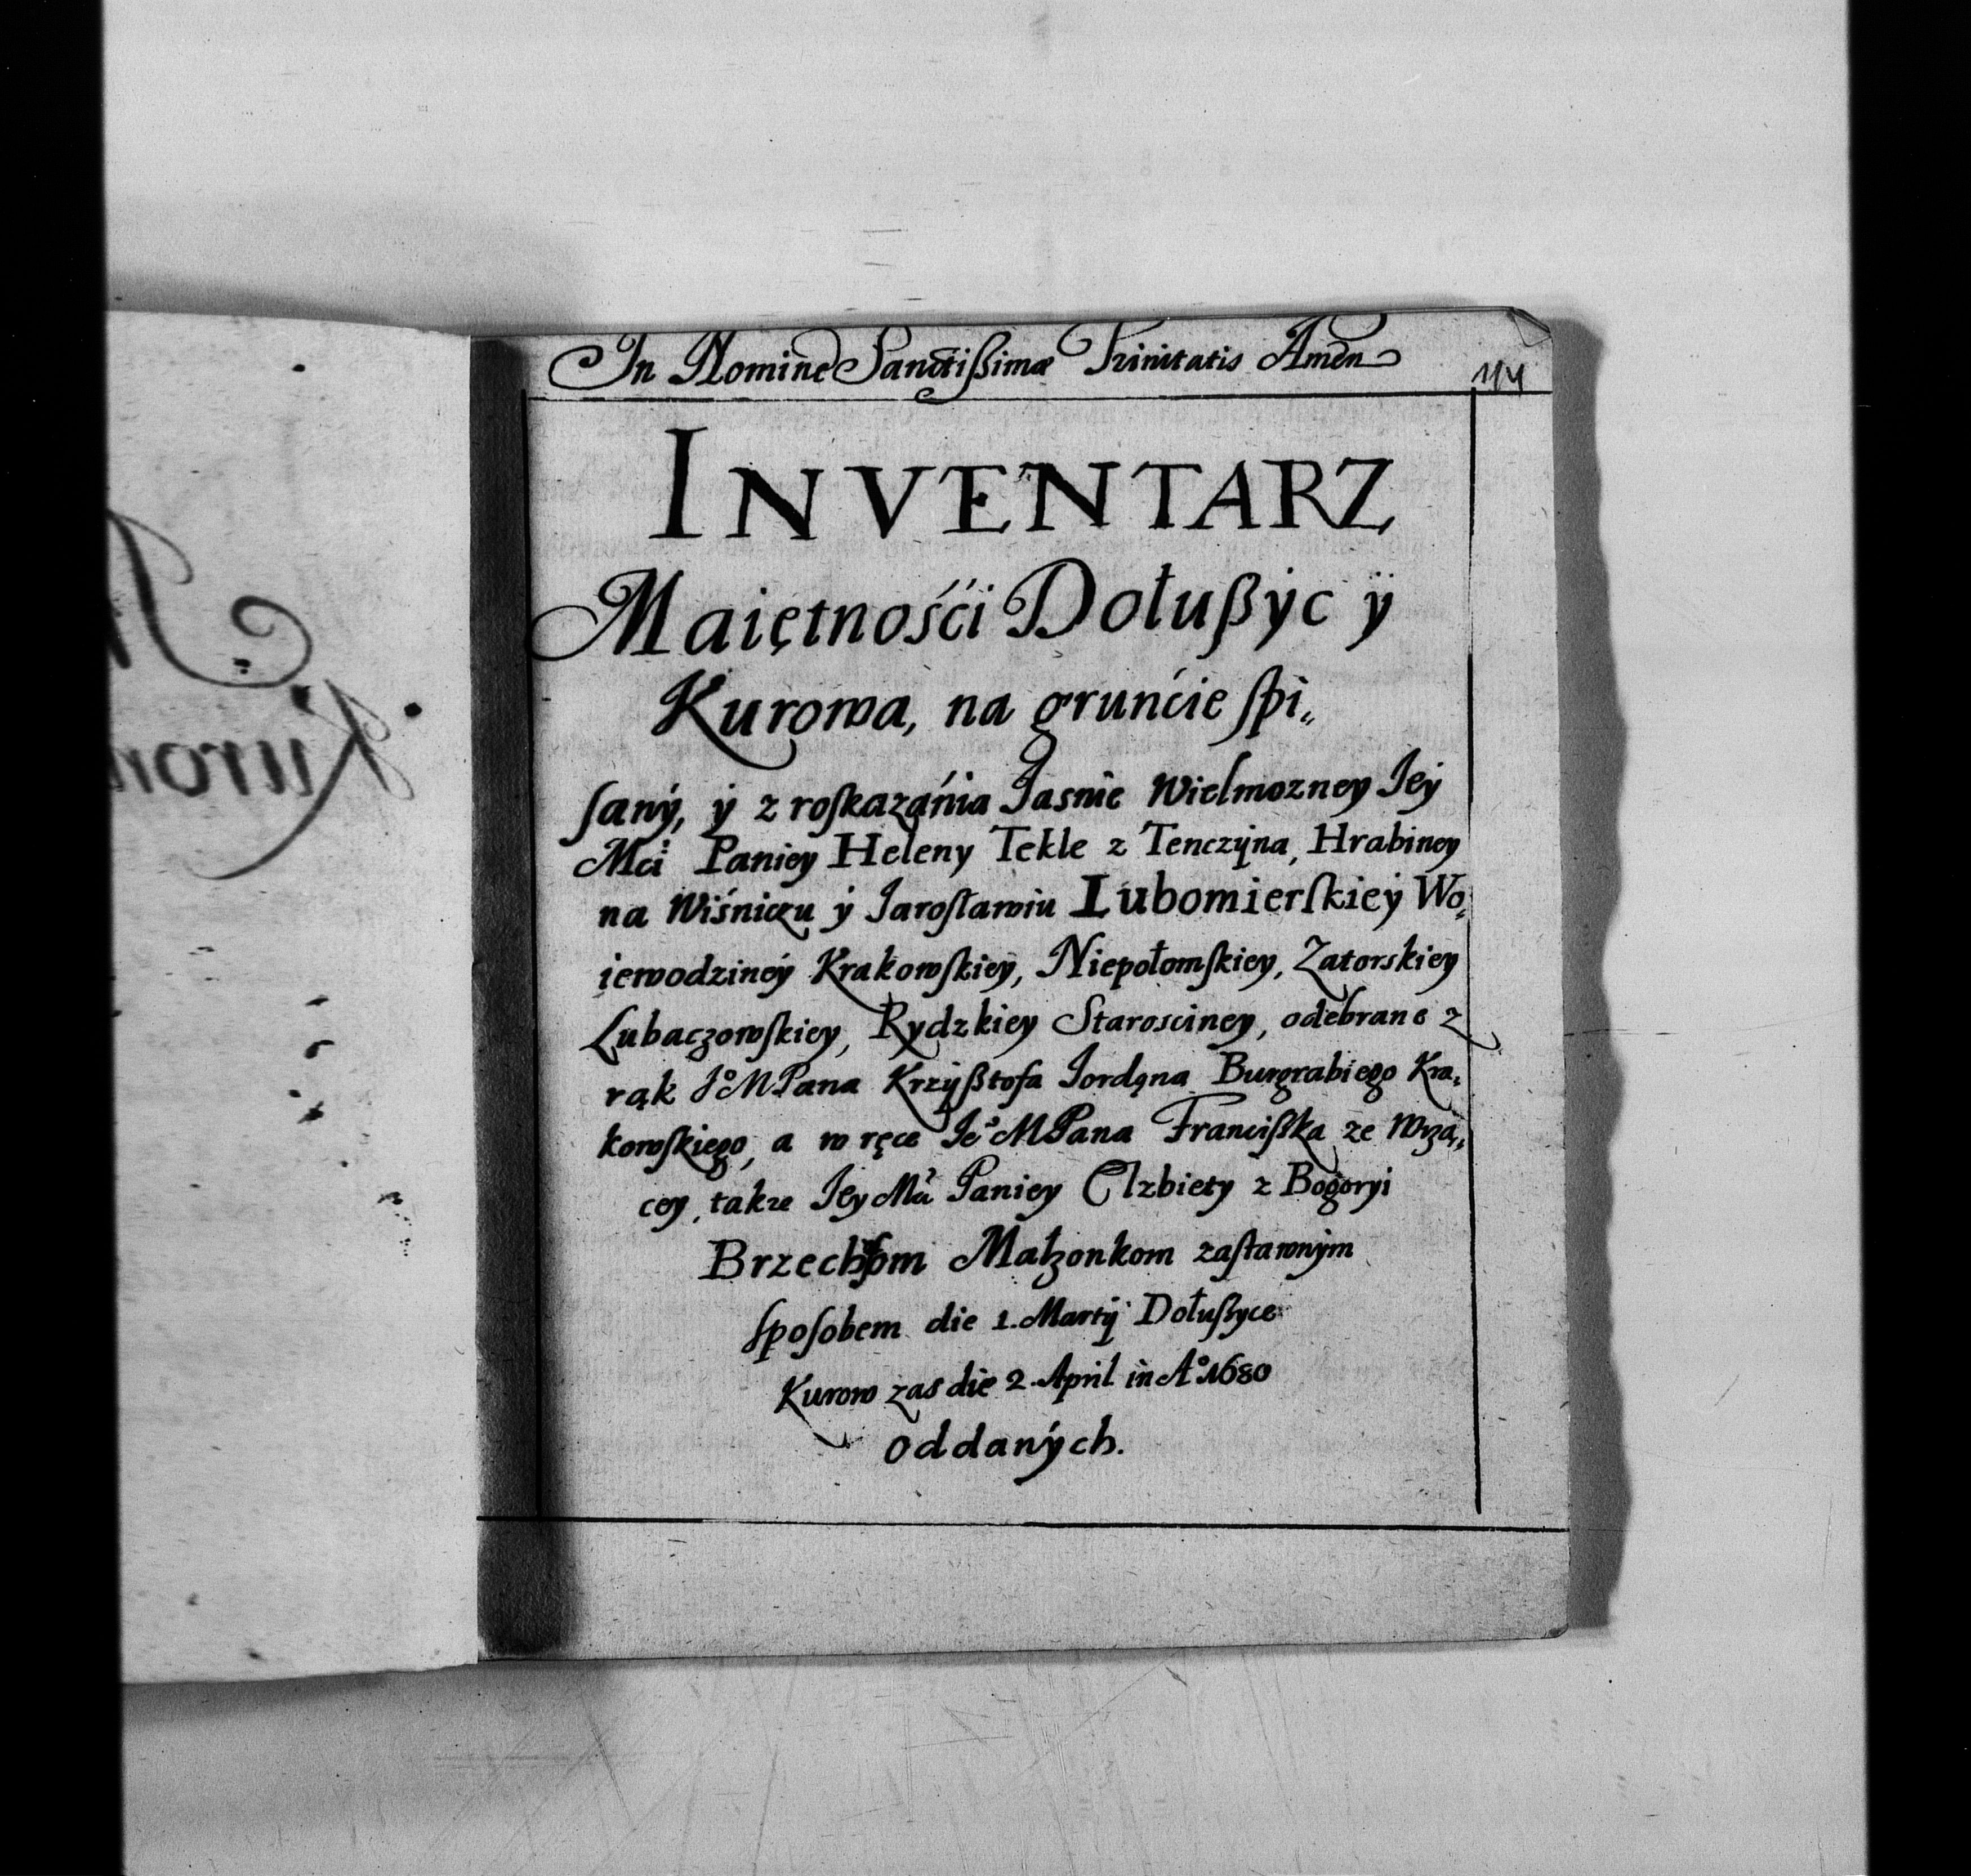 In Nomine Sanctißimæ Trinitatis Amen
114
INVENTARZ
Maiętnośći Dołußyc ÿ
Kurowa, na grunćie ſpi„
ſaný, ý z roſkazánia Jaśnie Wielmozney Jeý
Mći Paniey Heleny Tekle z Tenczÿna, Hrabiney
na Wiśniczu ý Jaroſławiu Lubomierſkieý Wo„
iewodzineý Krakowſkiey, Niepołomſkiey, Zatorskiey
Lubaczowſkiey, Rydzkiey Starosciney, odebrane z
rąk J° M Pana Krzÿßtofa Jordąna Burgrabiego Kra„
kowſkiego, a w ręce Je° M Pana Franciſzka ze Wrzą„
cey, takze Jey Mći Paniey Elzbiety z Bogoryi
Brzechffom Małzonkom zaſtawnÿm
ſpoſobem die 1. Martÿ Dołußyce
Kurow zas die 2 April in A° 1680
oddaných.